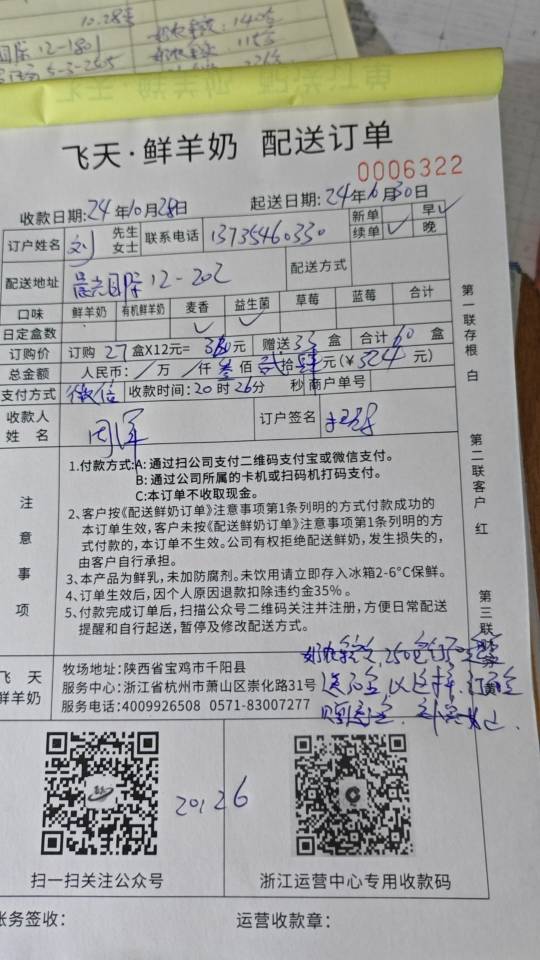 10.28
12-1801
140盒
5-3-2505
飞天·鲜羊奶 配送订单
0006322
收款日期:24年10月28日 起送日期:24年10月30日
订户姓名 刘 先生 女士 联系电话 13735460330 新单 早✓
续单 ✓ 晚
配送地址 12-202 配送方式
口味 鲜羊奶 有机鲜羊奶 麦香 益生菌 草莓 蓝莓 合计
日定盒数 ✓ ✓
订购价 订购 27 盒X12元= 元 赠送 33 盒 合计 60 盒
总金额 人民币: / 万 / 仟 叁 佰 贰 拾 肆 元(¥ 324 元)
支付方式 微信 收款时间: 20 时 26 分 秒 商户单号
收款人
姓 名
订户签名
注意事项
1.付款方式:A:通过扫公司支付二维码支付宝或微信支付。
B:通过公司所属的卡机或扫码机打码支付。
C:本订单不收取现金。
2、客户按《配送鲜奶订单》注意事项第1条列明的方式付款成功的
本订单生效,客户未按《配送鲜奶订单》注意事项第1条列明的方
式付款的,本订单不生效。公司有权拒绝配送鲜奶,发生损失的,
由客户自行承担。
3、本产品为鲜乳,未加防腐剂。未饮用请立即存入冰箱2-6°C保鲜。
4、订单生效后,因个人原因退款扣除违约金35%。
5、付款完成订单后,扫描公众号二维码关注并注册,方便日常配送
提醒和自行起送,暂停及修改配送方式。
第一联存根 白
第二联客户 红
第三联
飞 天
鲜羊奶
牧场地址:陕西省宝鸡市千阳县
服务中心:浙江省杭州市萧山区崇化路31号
服务电话:4009926508 0571-83007277
20,26
扫一扫关注公众号
浙江运营中心专用收款码
账务签收:
运营收款章: